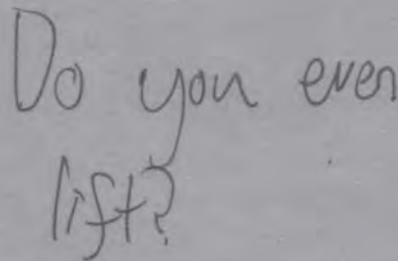 Do you even
lift?